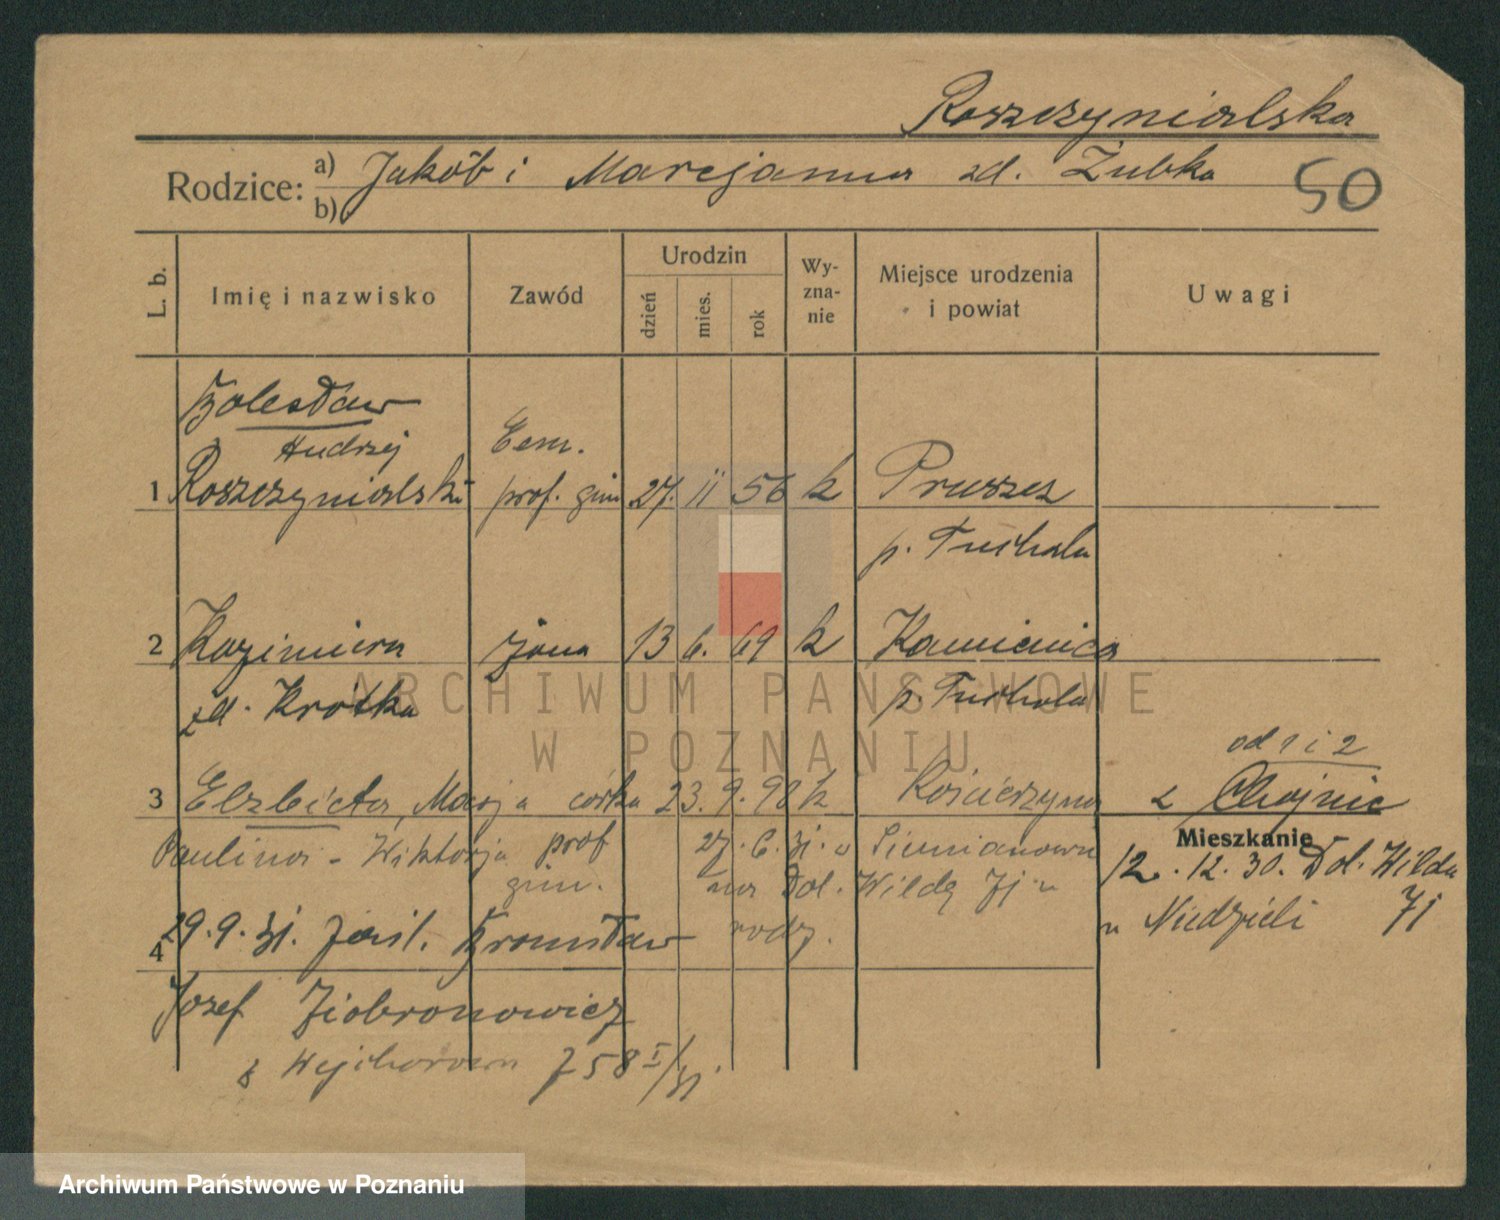 Roszczynialska
Rodzice: a) Jakób i Marcjanna zd. Żubka
b)
50
L. b. Imię i nazwisko Zawód Urodzin dzień mies. rok Wyznanie Miejsce urodzenia i powiat Uwagi
Bolesław
Andrzej Eem.
1 Roszczynialski prof. gim 27. 11 56 k Pruszcz
p. Tuchola
2 Kazimiera żona 13 6. 69 k Kamienica
zd. Krótka p. Tuchola
od 1 i 2
3 Elżbieta, Marja córka 23. 9. 98 k Kościerzyna z Chojnic
Mieszkanie
Paulina - Wiktorja prof gim. 27. 6. 31. Siemianowa 12. 12. 30. Dol. Wilda
na Dol. Wildę 71 u rodz. u Niedzieli 71
4 29.9.31. Bronisław
Józef Ziobronowicz
z Wejherowa 758 I/31
ARCHIWUM PAŃSTWOWE
W POZNANIU
Archiwum Państwowe w Poznaniu